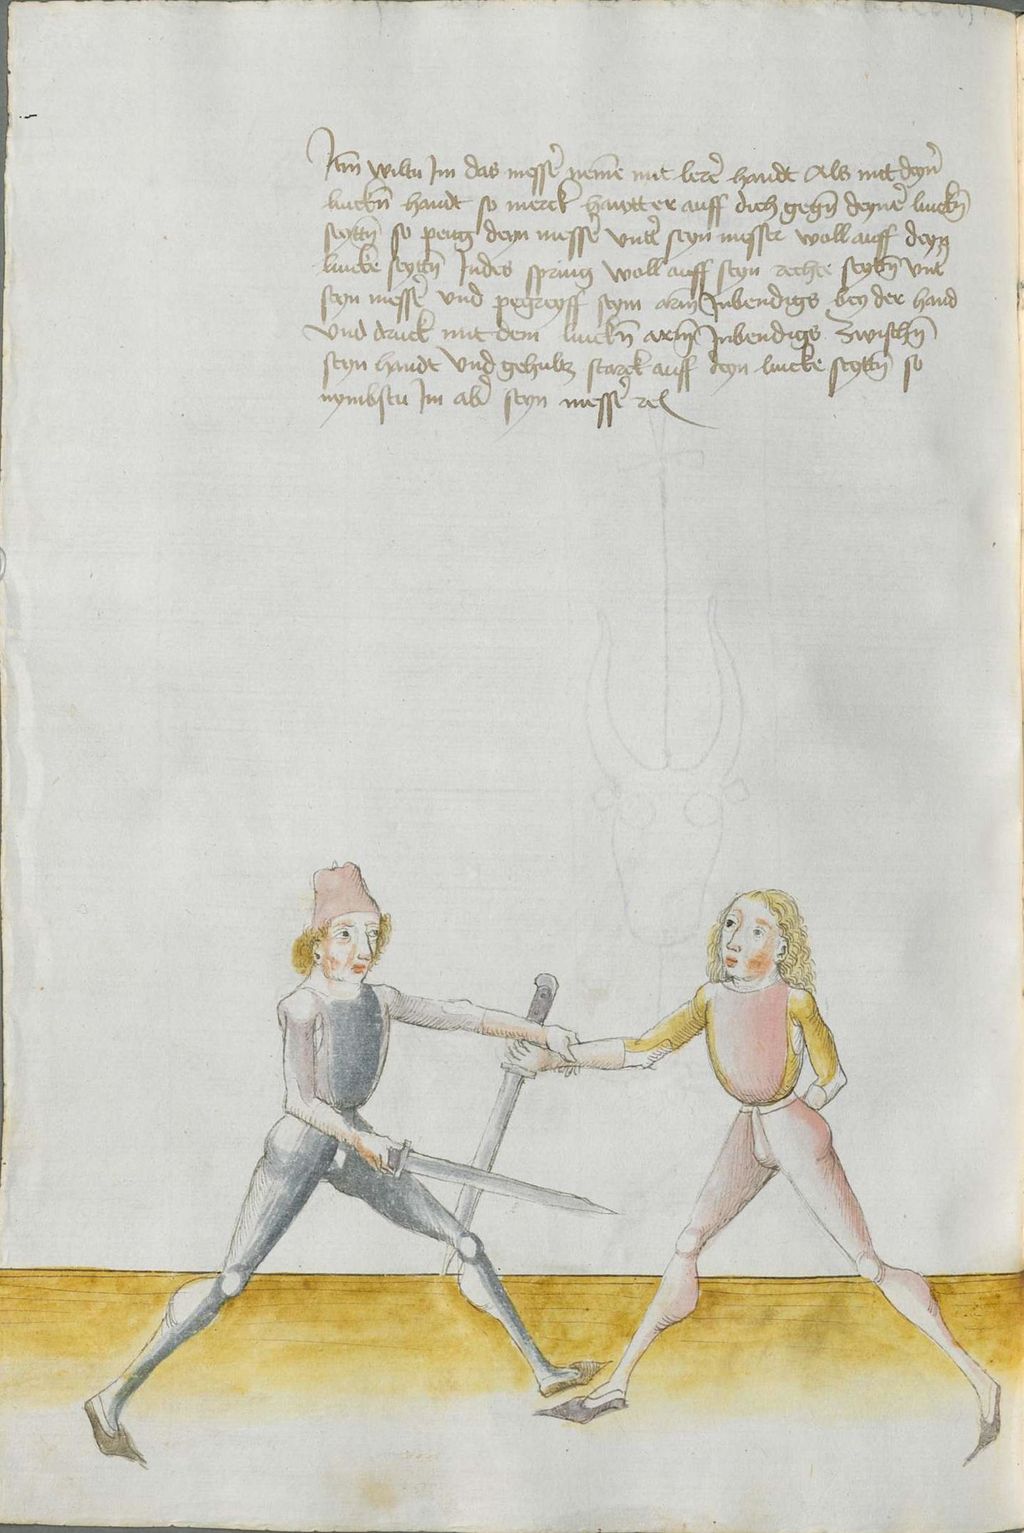 Itm̄ wiltu Im das messer̄ neme͞ mit lere͛ handt Als mit deyn͛
linckn̄ handt so merck hawtt er auff dich gegn̄ deyne͛ linckn̄
seyttn̄ so peug deyn messer̄ vnte͛ seyn messer woll auff deyn
lincke seyttn̄ Indes spring woll auff seyn rechte seyttn̄ vnt͛
seyn messer̄ vnd pegreyff seyn arm̄ Inbendigs bey der hand
vnd druck mit dem linckn̄ arm̄ Inbendigs zwischn̄
seyn handt vnd gehultz starck auff deyn lincke seyttn̄ so
nymbstu Im ab͛ seyn messer̄ rel